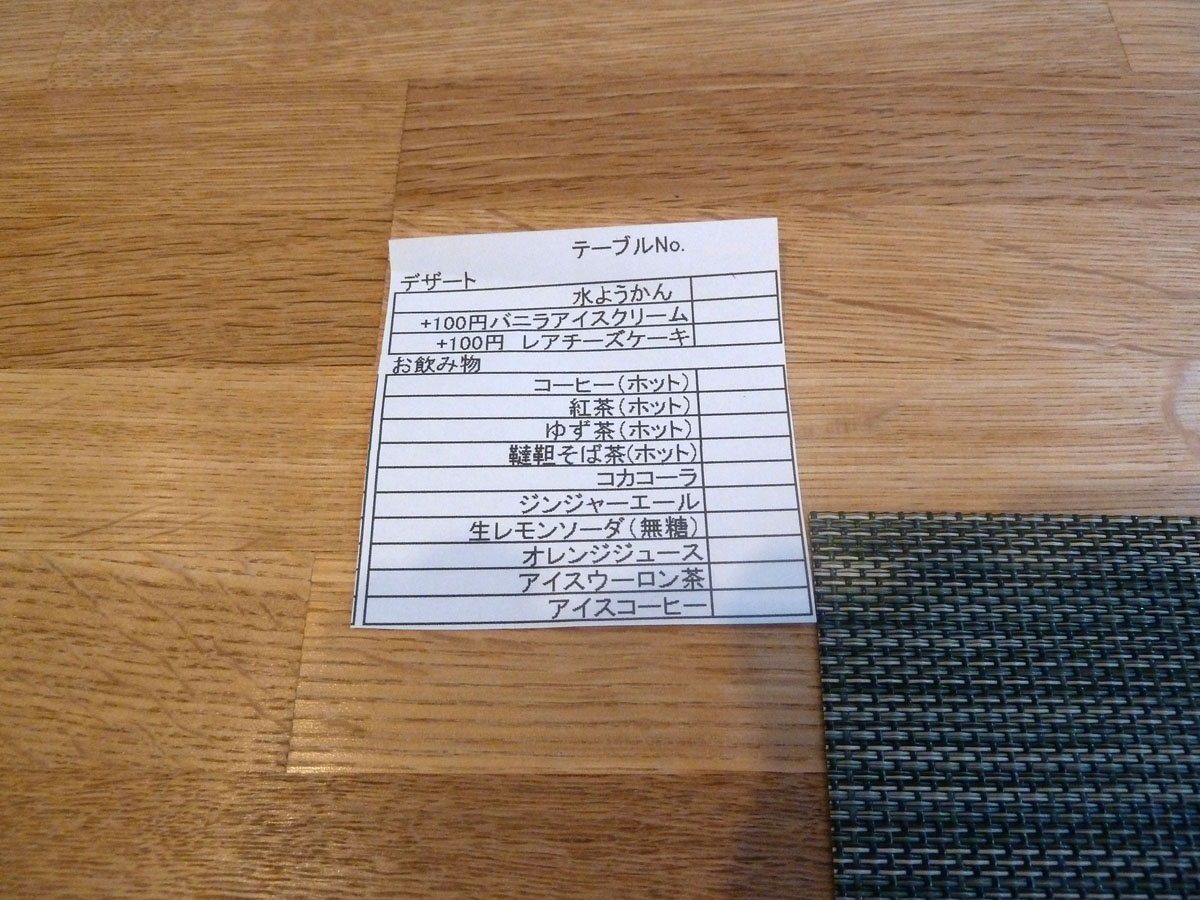 テーブルNo.
デザート
水ようかん
+100円バニラアイスクリーム
+100円 レアチーズケーキ
お飲み物
コーヒー(ホット)
紅茶(ホット)
ゆず茶(ホット)
韃靼そば茶(ホット)
コカコーラ
ジンジャーエール
生レモンソーダ(無糖)
オレンジジュース
アイスウーロン茶
アイスコーヒー